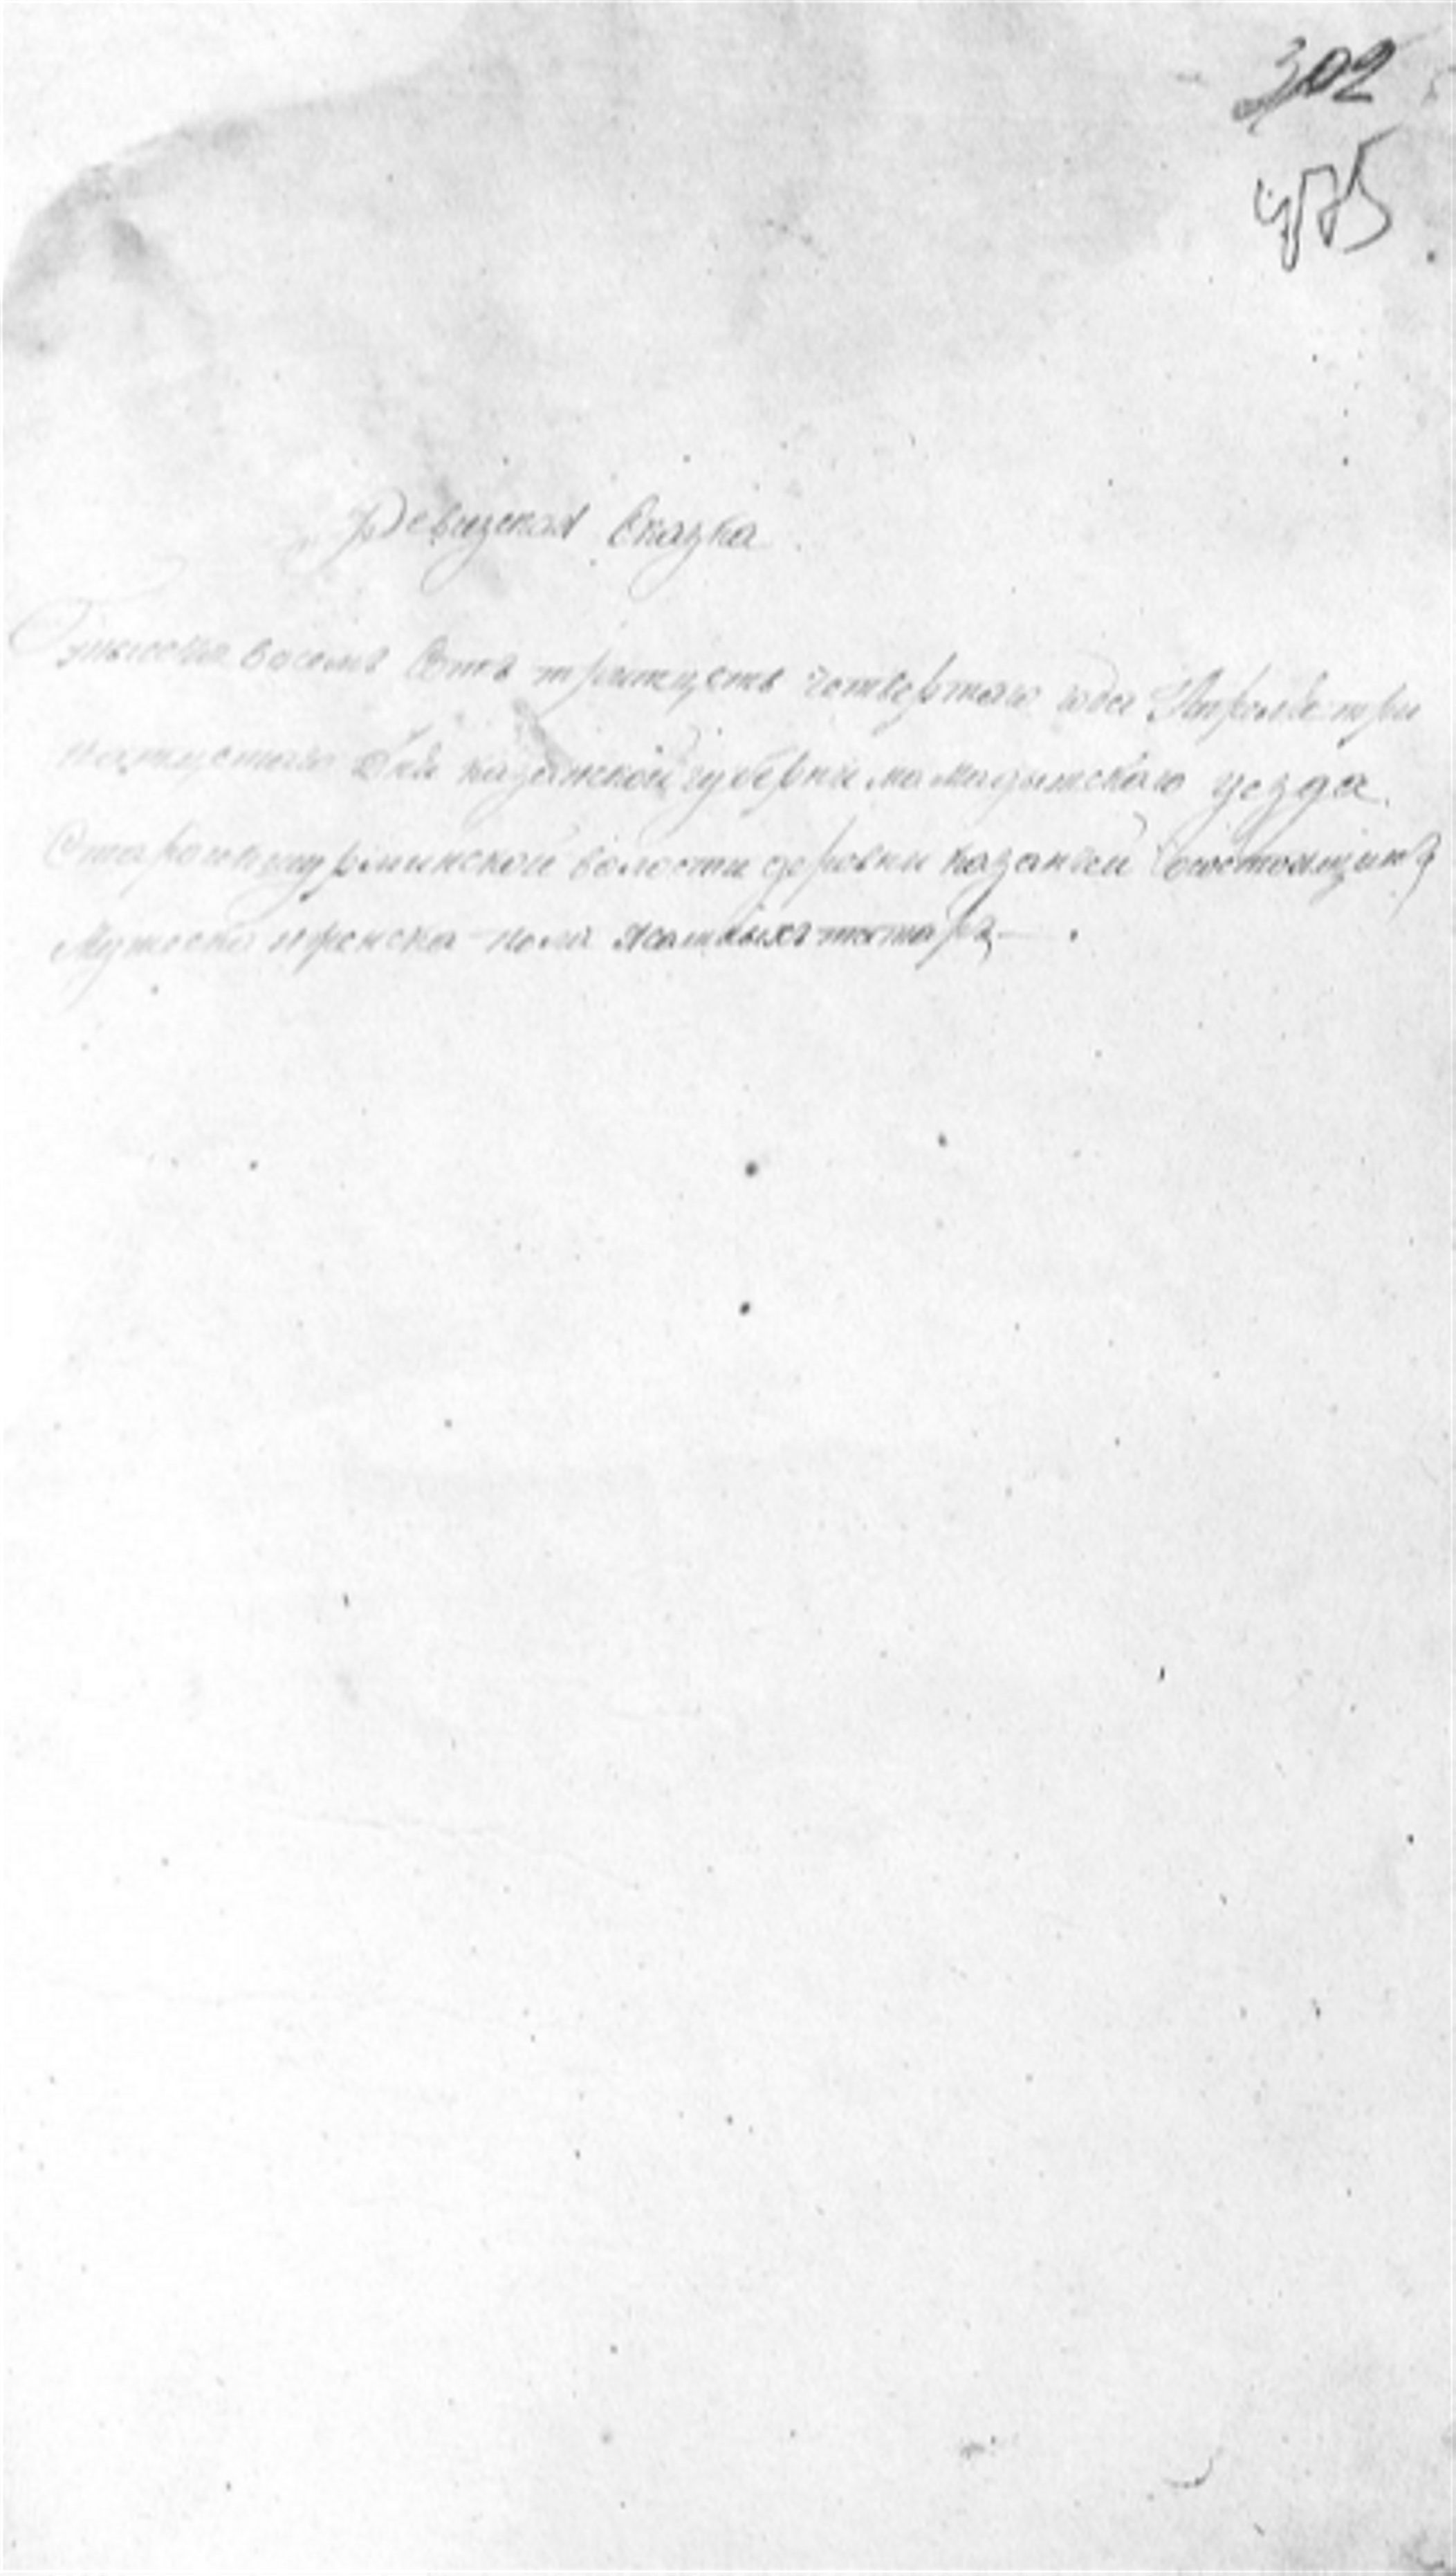 302
475
Ревизская Сказка
Тысеча восемь Сотъ тритцеть четвертаго года Апреля три
натцетаго дня казанской губерни мамадышскаго уезда.
Старои шурминской волости деревни казанчеи Состоящихъ
Мужеска и женска пола ясашныхъ татаръ.